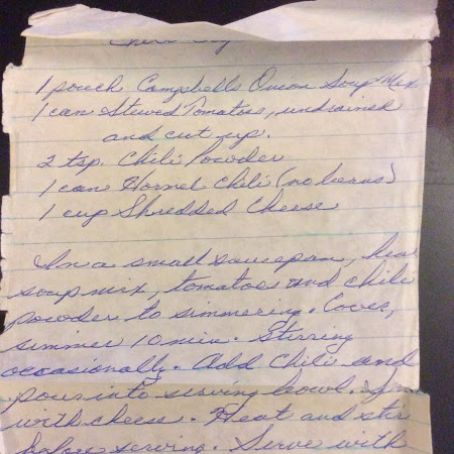 1 pouch Campbells Onion Soup Mix
1 can Stewed Tomatoes, undrained
and cut up.
2 tsp. Chili Powder
1 can Hormel Chili (no beans)
1 cup Shredded Cheese
In a small saucepan, hea
soup mix, tomatoes and chili
powder to simmering. Cover,
simmer 10 min. Stirring
occasionally. Add Chili and
pour into serving bowl.
with cheese. Heat and stir
before serving. Serve with